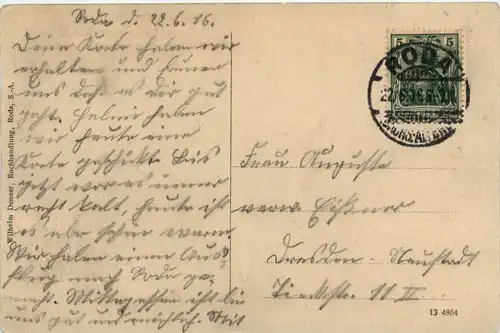 Roda d. 22.6.16.
Deine Karte haben wir
erhalten und freuen
uns daß es dir gut
geht. haben
wir heute eine
Karte geschickt. Bis
jetzt war es immer
recht kalt, heute ist
es aber schön warm.
Wir haben einen Aus-
flug nach Roda ge-
macht. Mittagessen ist bei
uns gut und reichlich. Mit
Wilhelm Denner, Buchhandlung, Roda, S.-A.
5 5
RODA
22.6.16
Frau Auguste
verw. Eißner
Dresden-Neustadt
11 II
13 4864